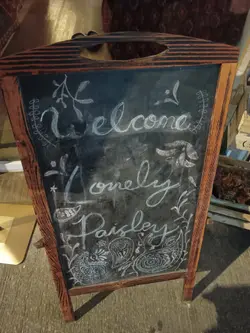 Welcome
Lonely
Paisley